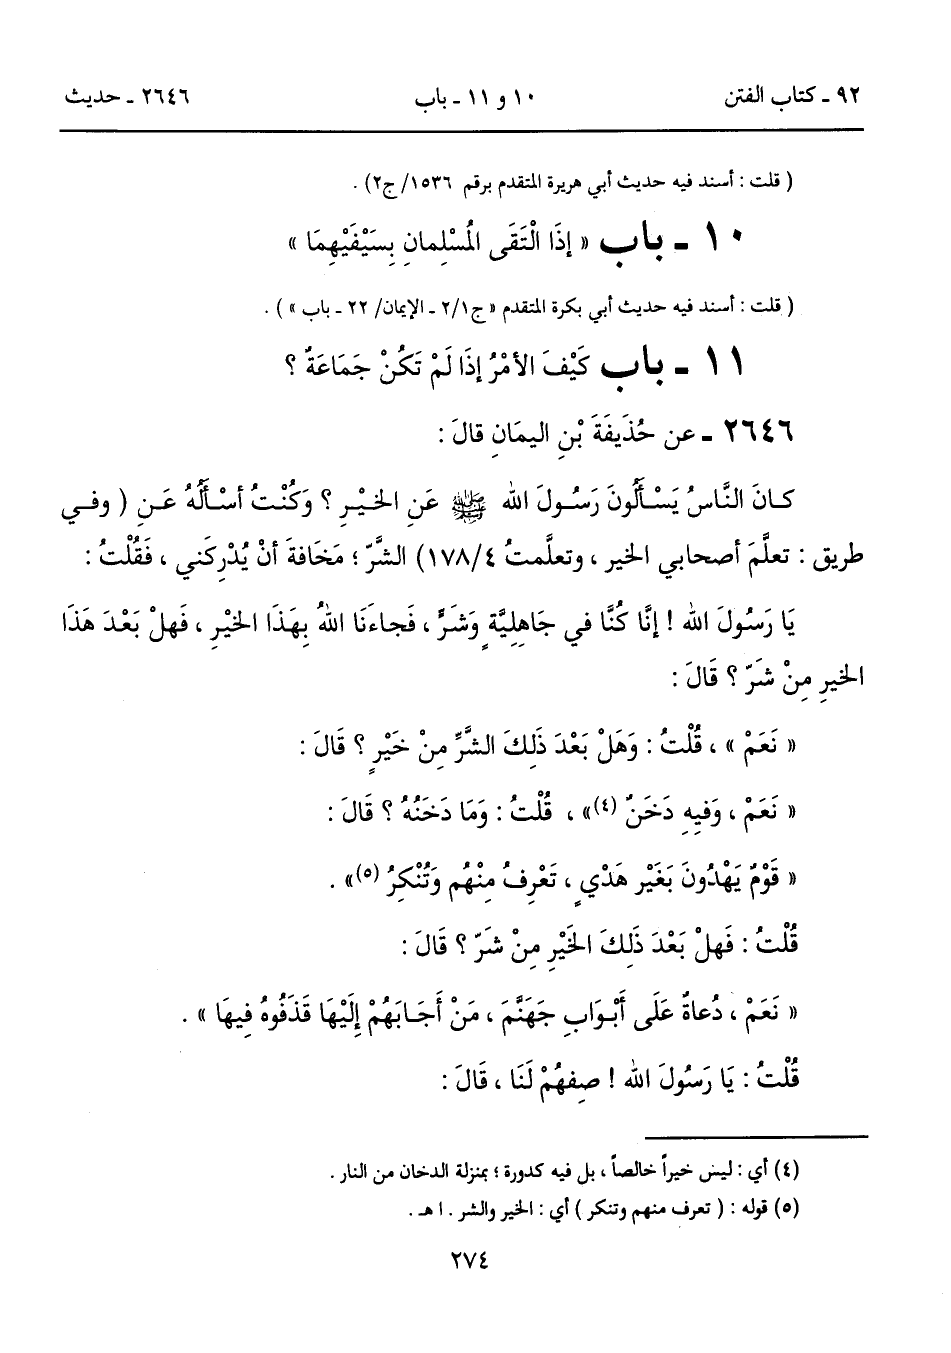 ٩٢ ـ كتاب الفتن ١٠ و ١١ ـ باب ٢٦٤٦ ـ حديث
( قلت : أسند فيه حديث أبي هريرة المتقدم برقم ١٥٣٦/ ج٢) .
١٠ ـ باب « إِذَا الْتَقَى الْمُسْلِمانِ بِسَيْفَيْهِمَا »
( قلت : أسند فيه حديث أبي بكرة المتقدم « ج٢/١ ـ الإيمان/ ٢٢ ـ باب » ) .
١١ ـ باب كَيْفَ الأمْرُ إذَا لَمْ تَكُنْ جَمَاعَةٌ ؟
٢٦٤٦ ـ عن حُذَيفَةَ بْنِ اليمَانِ قالَ :
كـانَ النَّاسُ يَسْـأَلُونَ رَسُـولَ الله ﷺ عَنِ الخَـيْـرِ ؟ وَكُنْـتُ أسْـأَلُهُ عَـنِ ( وفـي
طريق : تعلَّمَ أصحابي الخير ، وتعلَّمتُ ١٧٨/٤) الشَّرِّ ؛ مَخَافةَ أنْ يُدْرِكَني ، فَقُلْتُ :
يَا رَسُولَ الله ! إنَّا كُنَّا في جَاهِلِيَّةٍ وَشَرٍّ ، فَجاءَنَا اللهُ بِهَذَا الخَيْرِ ، فَهلْ بَعْدَ هَذَا
الخيرِ مِنْ شَرّ ؟ قَالَ :
« نَعَمْ » ، قُلْتُ : وَهَلْ بَعْدَ ذَلِكَ الشَّرِّ مِنْ خَيْرٍ ؟ قَالَ :
« نَعَمْ ، وَفيهِ دَخَنٌ (٤)» ، قُلْتُ : وَمَا دَخَنُهُ ؟ قَالَ :
« قَوْمٌ يَهْدُونَ بَغَيْرِ هَدْيٍ ، تَعْرِفُ مِنْهُم وَتُنْكِرُ (٥)» .
قُلْتُ : فَهلْ بَعْدَ ذَلِكَ الخَيْرِ مِنْ شَرّ ؟ قَالَ :
« نَعَمْ ، دُعاةٌ عَلَى أَبْـوَابِ جَهَنَّمَ ، مَنْ أَجَـابَهُمْ إِلَيْهَا قَذَفُوهُ فِيهَا » .
قُلْتُ : يَا رَسُولَ الله ! صِفهُمْ لَنَا ، قَالَ :
(٤) أي : ليس خيراً خالصاً ، بل فيه كدورة ؛ بمنزلة الدخان من النار .
(٥) قوله : ( تعرف منهم وتنكر ) أي : الخير والشر . ا هـ .
٢٧٤